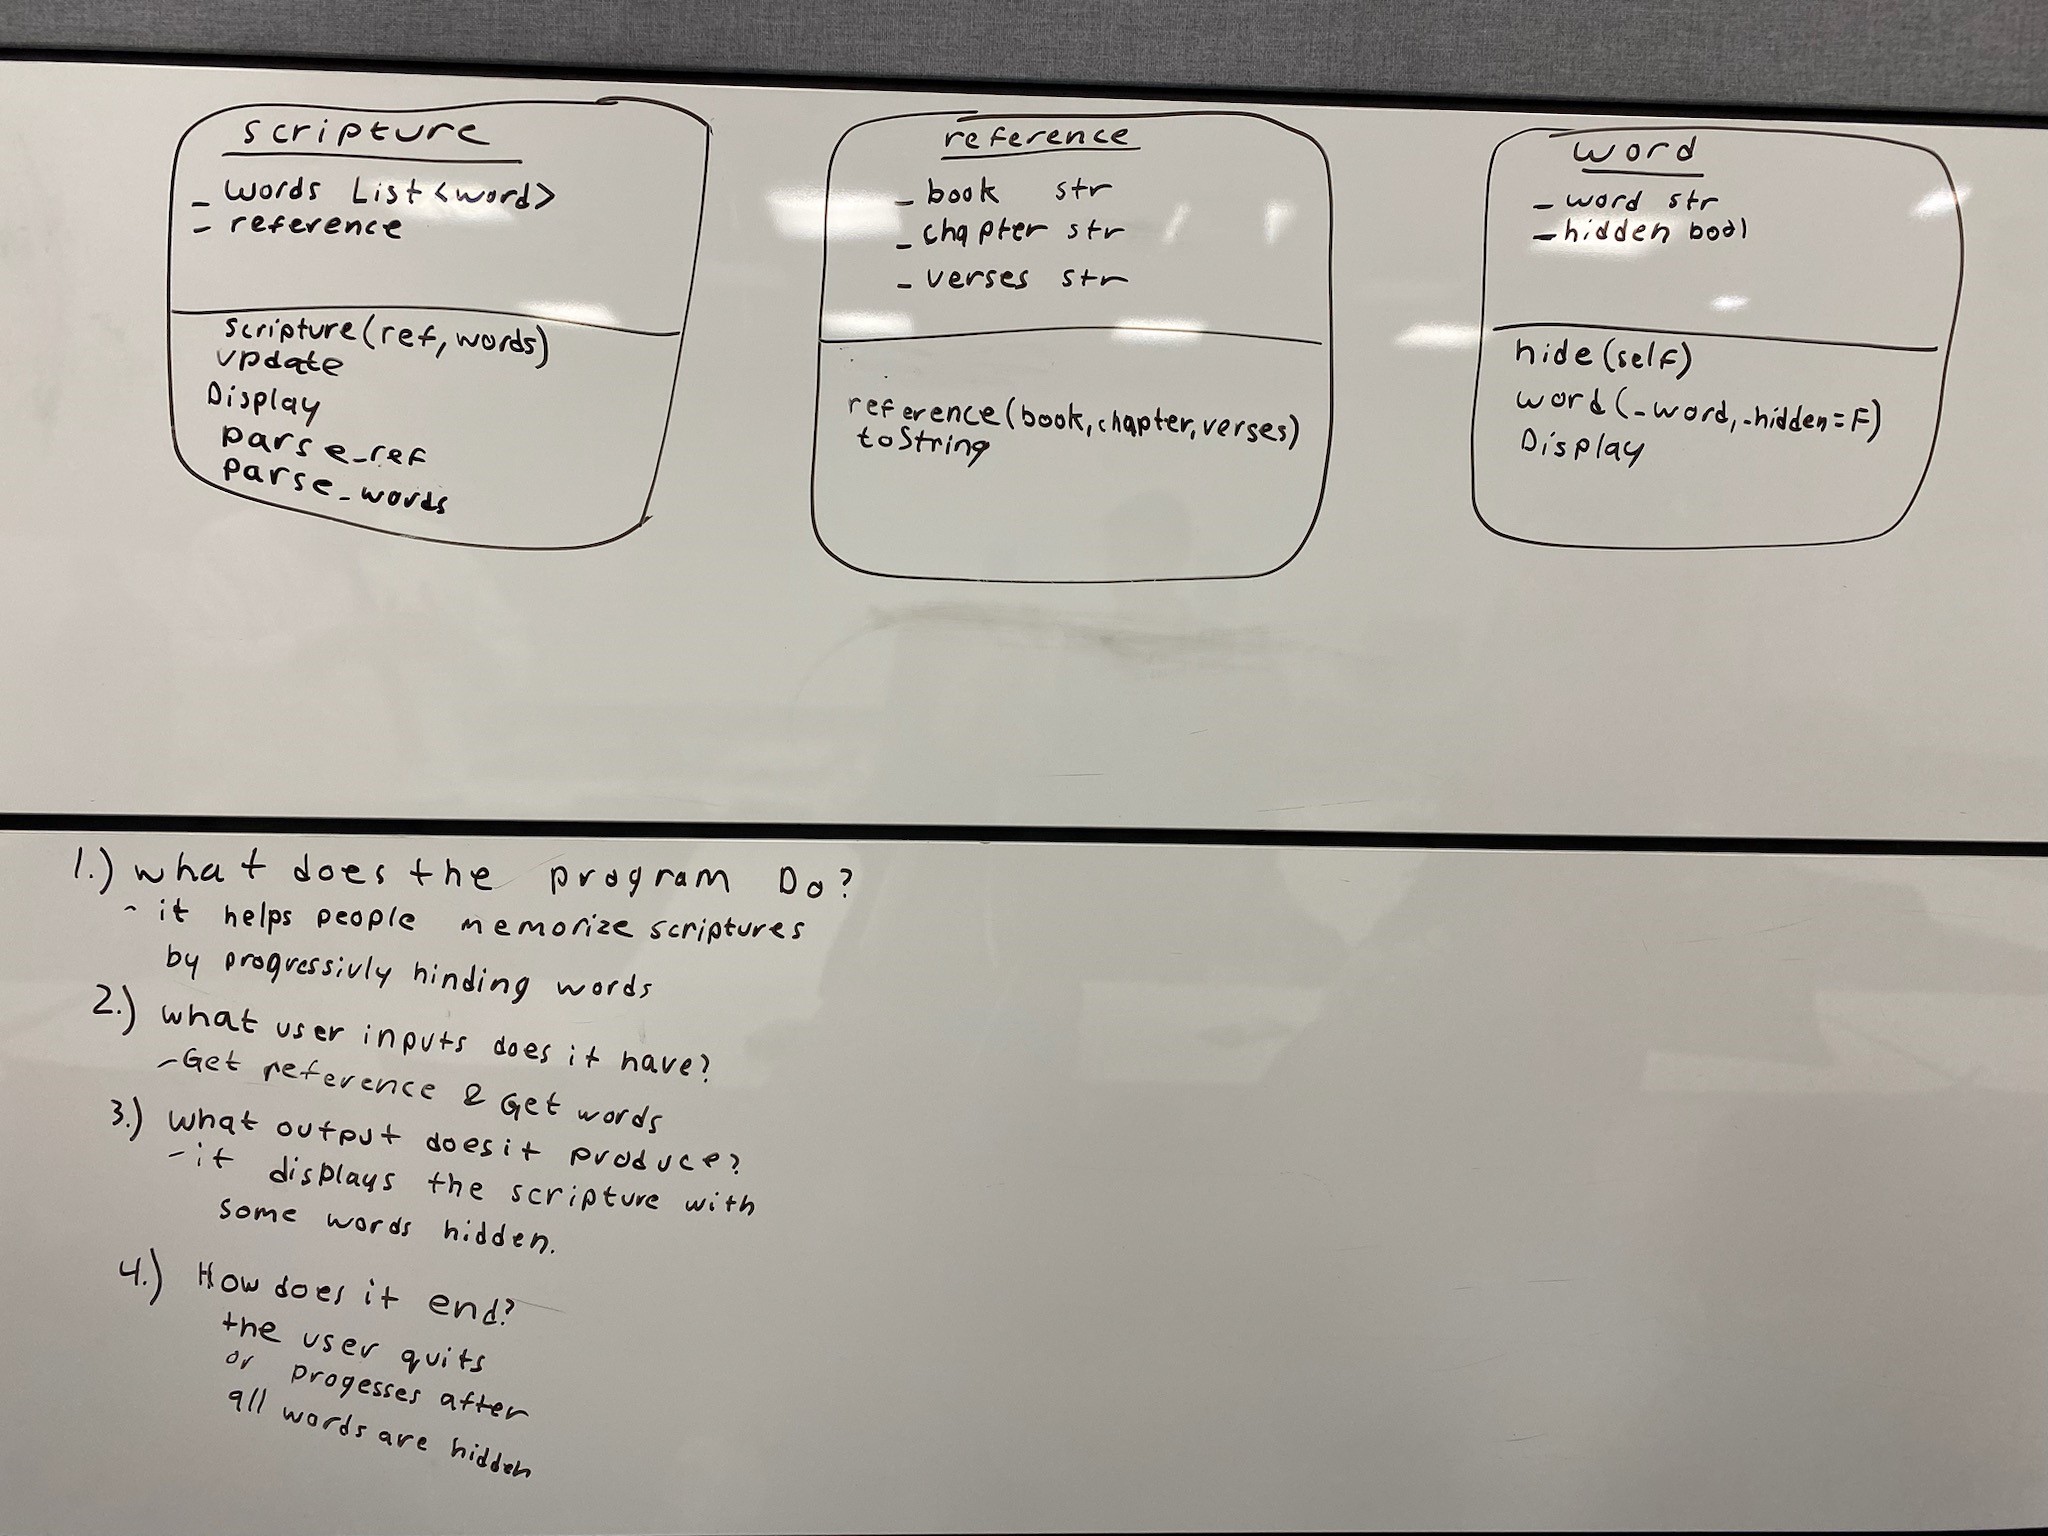 scripture
_ words List<word>
- reference
scripture(ref, words)
update
Display
parse_ref
parse_words
reference
_ book str
_ chapter str
- verses str
reference(book, chapter, verses)
toString
word
- word str
- hidden bool
hide(self)
word(_word, _hidden=F)
Display
1.) what does the program Do?
- it helps people memorize scriptures
by progressivly hinding words
2.) what user inputs does it have?
- Get reference & Get words
3.) what output does it produce?
- it displays the scripture with
some words hidden.
4.) How does it end?
the user quits
or progesses after
all words are hidden